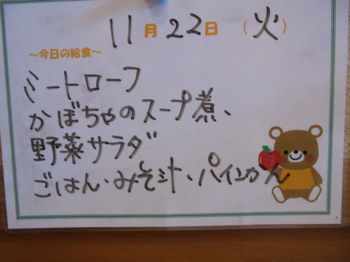 11月22日(火)
～今日の給食～
ミートローフ
かぼちゃのスープ煮、
野菜サラダ
ごはん、みそ汁、パインかん